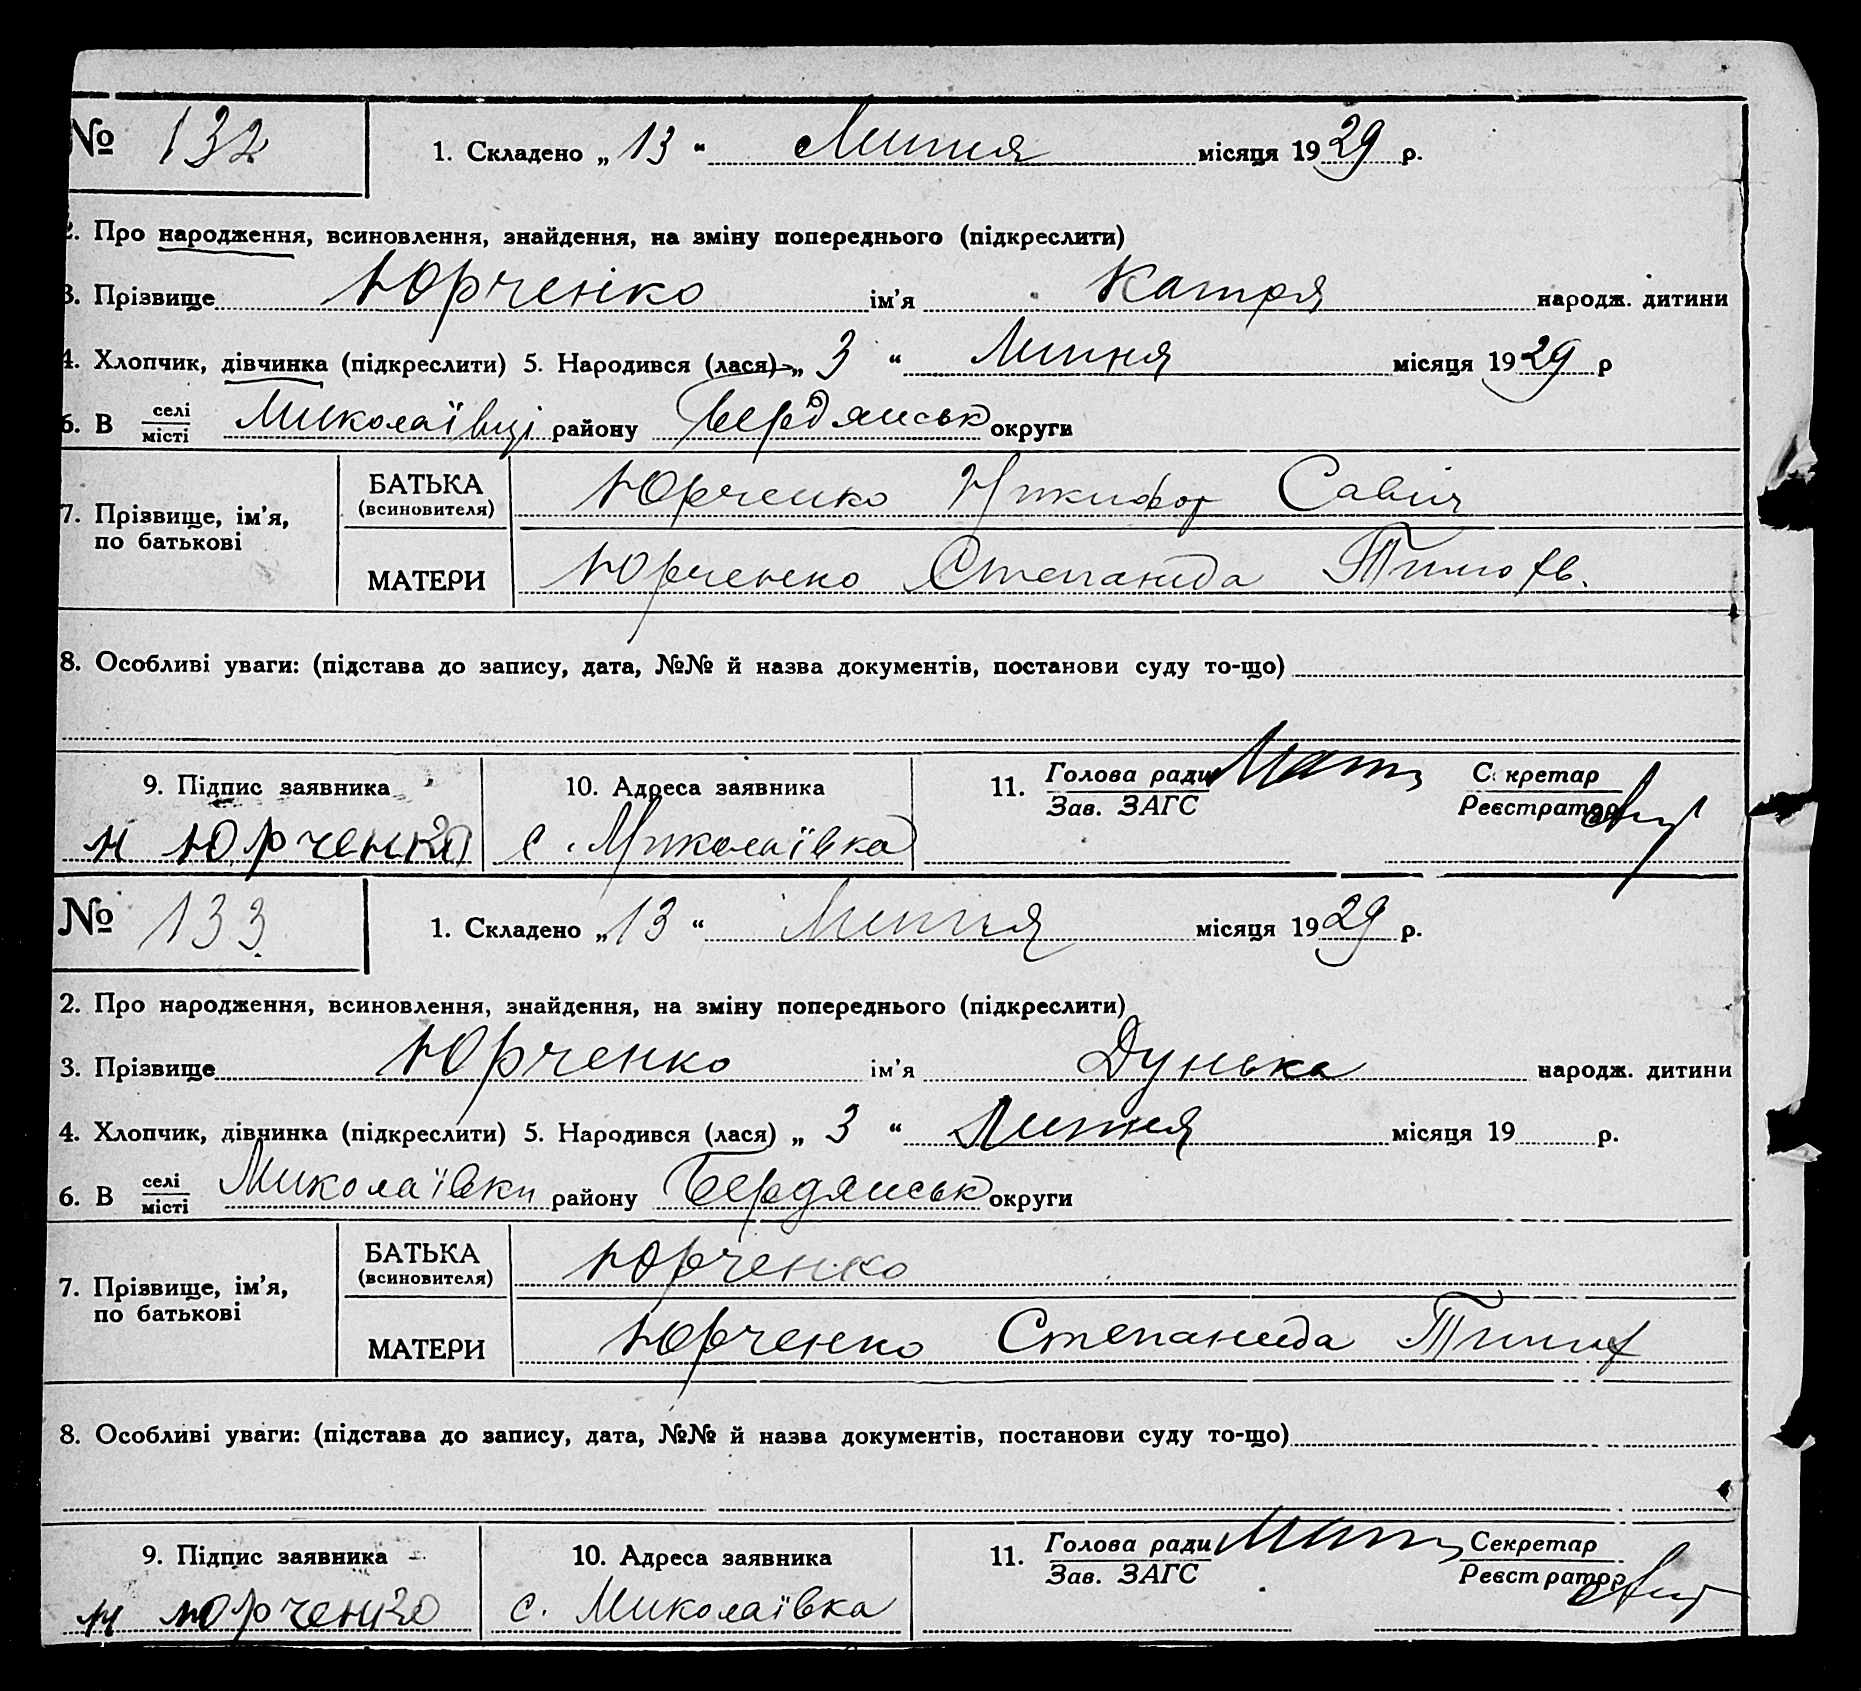 № 132 1. Складено „13“ Липня місяця 1929 р.
2. Про народження, всиновлення, знайдення, на зміну попереднього (підкреслити)
3. Прізвище Юрченко ім’я Катря народж. дитини
4. Хлопчик, дівчинка (підкреслити) 5. Народився (лася) „3“ Липня місяця 1929 р
6. В селі місті Миколаївці району Бердянськ округи
7. Прізвище, ім’я, по батькові
БАТЬКА (всиновителя) Юрченко Никифор Савич
МАТЕРИ Юрченко Степанида Тимофв.
8. Особливі уваги: (підстава до запису, дата, №№ й назва документів, постанови суду то-що)
9. Підпис заявника 10. Адреса заявника 11. Голова ради Секретар
Зав. ЗАГС Реєстратор
н Юрченко с. Миколаївка
№ 133 1. Складено „13“ Липня місяця 1929 р.
2. Про народження, всиновлення, знайдення, на зміну попереднього (підкреслити)
3. Прізвище Юрченко ім’я Дунька народж. дитини
4. Хлопчик, дівчинка (підкреслити) 5. Народився (лася) „3“ Липня місяця 19 р.
6. В селі місті Миколаївки району Бердянськ округи
7. Прізвище, ім’я, по батькові
БАТЬКА (всиновителя) Юрченко
МАТЕРИ Юрченко Степанида Тимоф
8. Особливі уваги: (підстава до запису, дата, №№ й назва документів, постанови суду то-що)
9. Підпис заявника 10. Адреса заявника 11. Голова ради Секретар
Зав. ЗАГС Реєстратор
н Юрченко с. Миколаївка